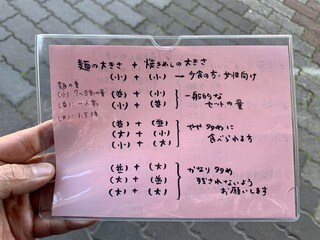 麺の大きさ + 焼きめしの大きさ
(小) + (小) → 少食の方・女性向け
麺の量
(小) 7〜8割の量
(並) 一人前
(大) 1.5倍
(並) + (小)
(小) + (並)
一般的な
セットの量
(並) + (並)
(大) + (小)
(小) + (大)
やや多めに
食べられる方
(並) + (大)
(大) + (並)
(大) + (大)
かなり多め
残されないよう
お願いします